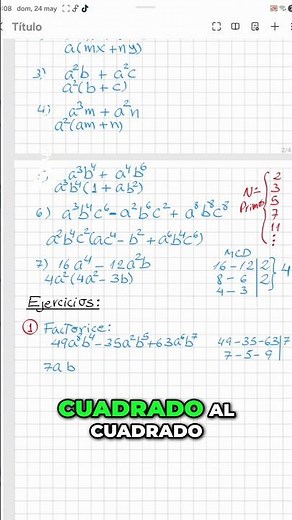 :08 dom, 24 may
Título
a(mx+ny)
3) a²b + a²c
a²(b + c)
4) a³m + a²n
a²(am+n)
2/4
a³b⁴ + a⁴b⁶
a³b⁴(1 + ab²)
6) a³b⁴c⁶ - a²b⁶c² + a⁸b⁸c⁸
a²b⁴c²(ac⁴ - b² + a⁶b⁴c⁶)
7) 16a⁴ - 12a²b
4a²(4a² - 3b)
N = Primos { 2
3
5
7
11
⋮
MCD
16 - 12 | 2
8 - 6 | 2
4 - 3 | } 4
Ejercicios:
1 Factorice:
49a⁸b⁴ - 35a²b⁵ + 63a⁶b⁷
7ab
49 - 35 - 63 | 7
7 - 5 - 9 |
CUADRADO AL
CUADRADO